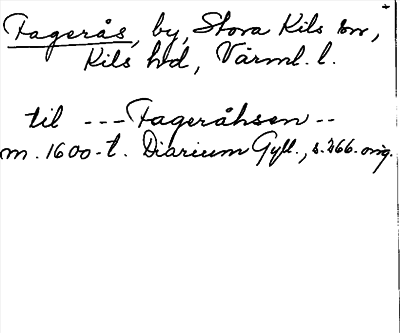 Fagerås, by, Stora Kils sn,
Kils hd, Värml. l.
til --- Fageråhsen --
m. 1600-t. Diarium Gyll., s. 366. orig.